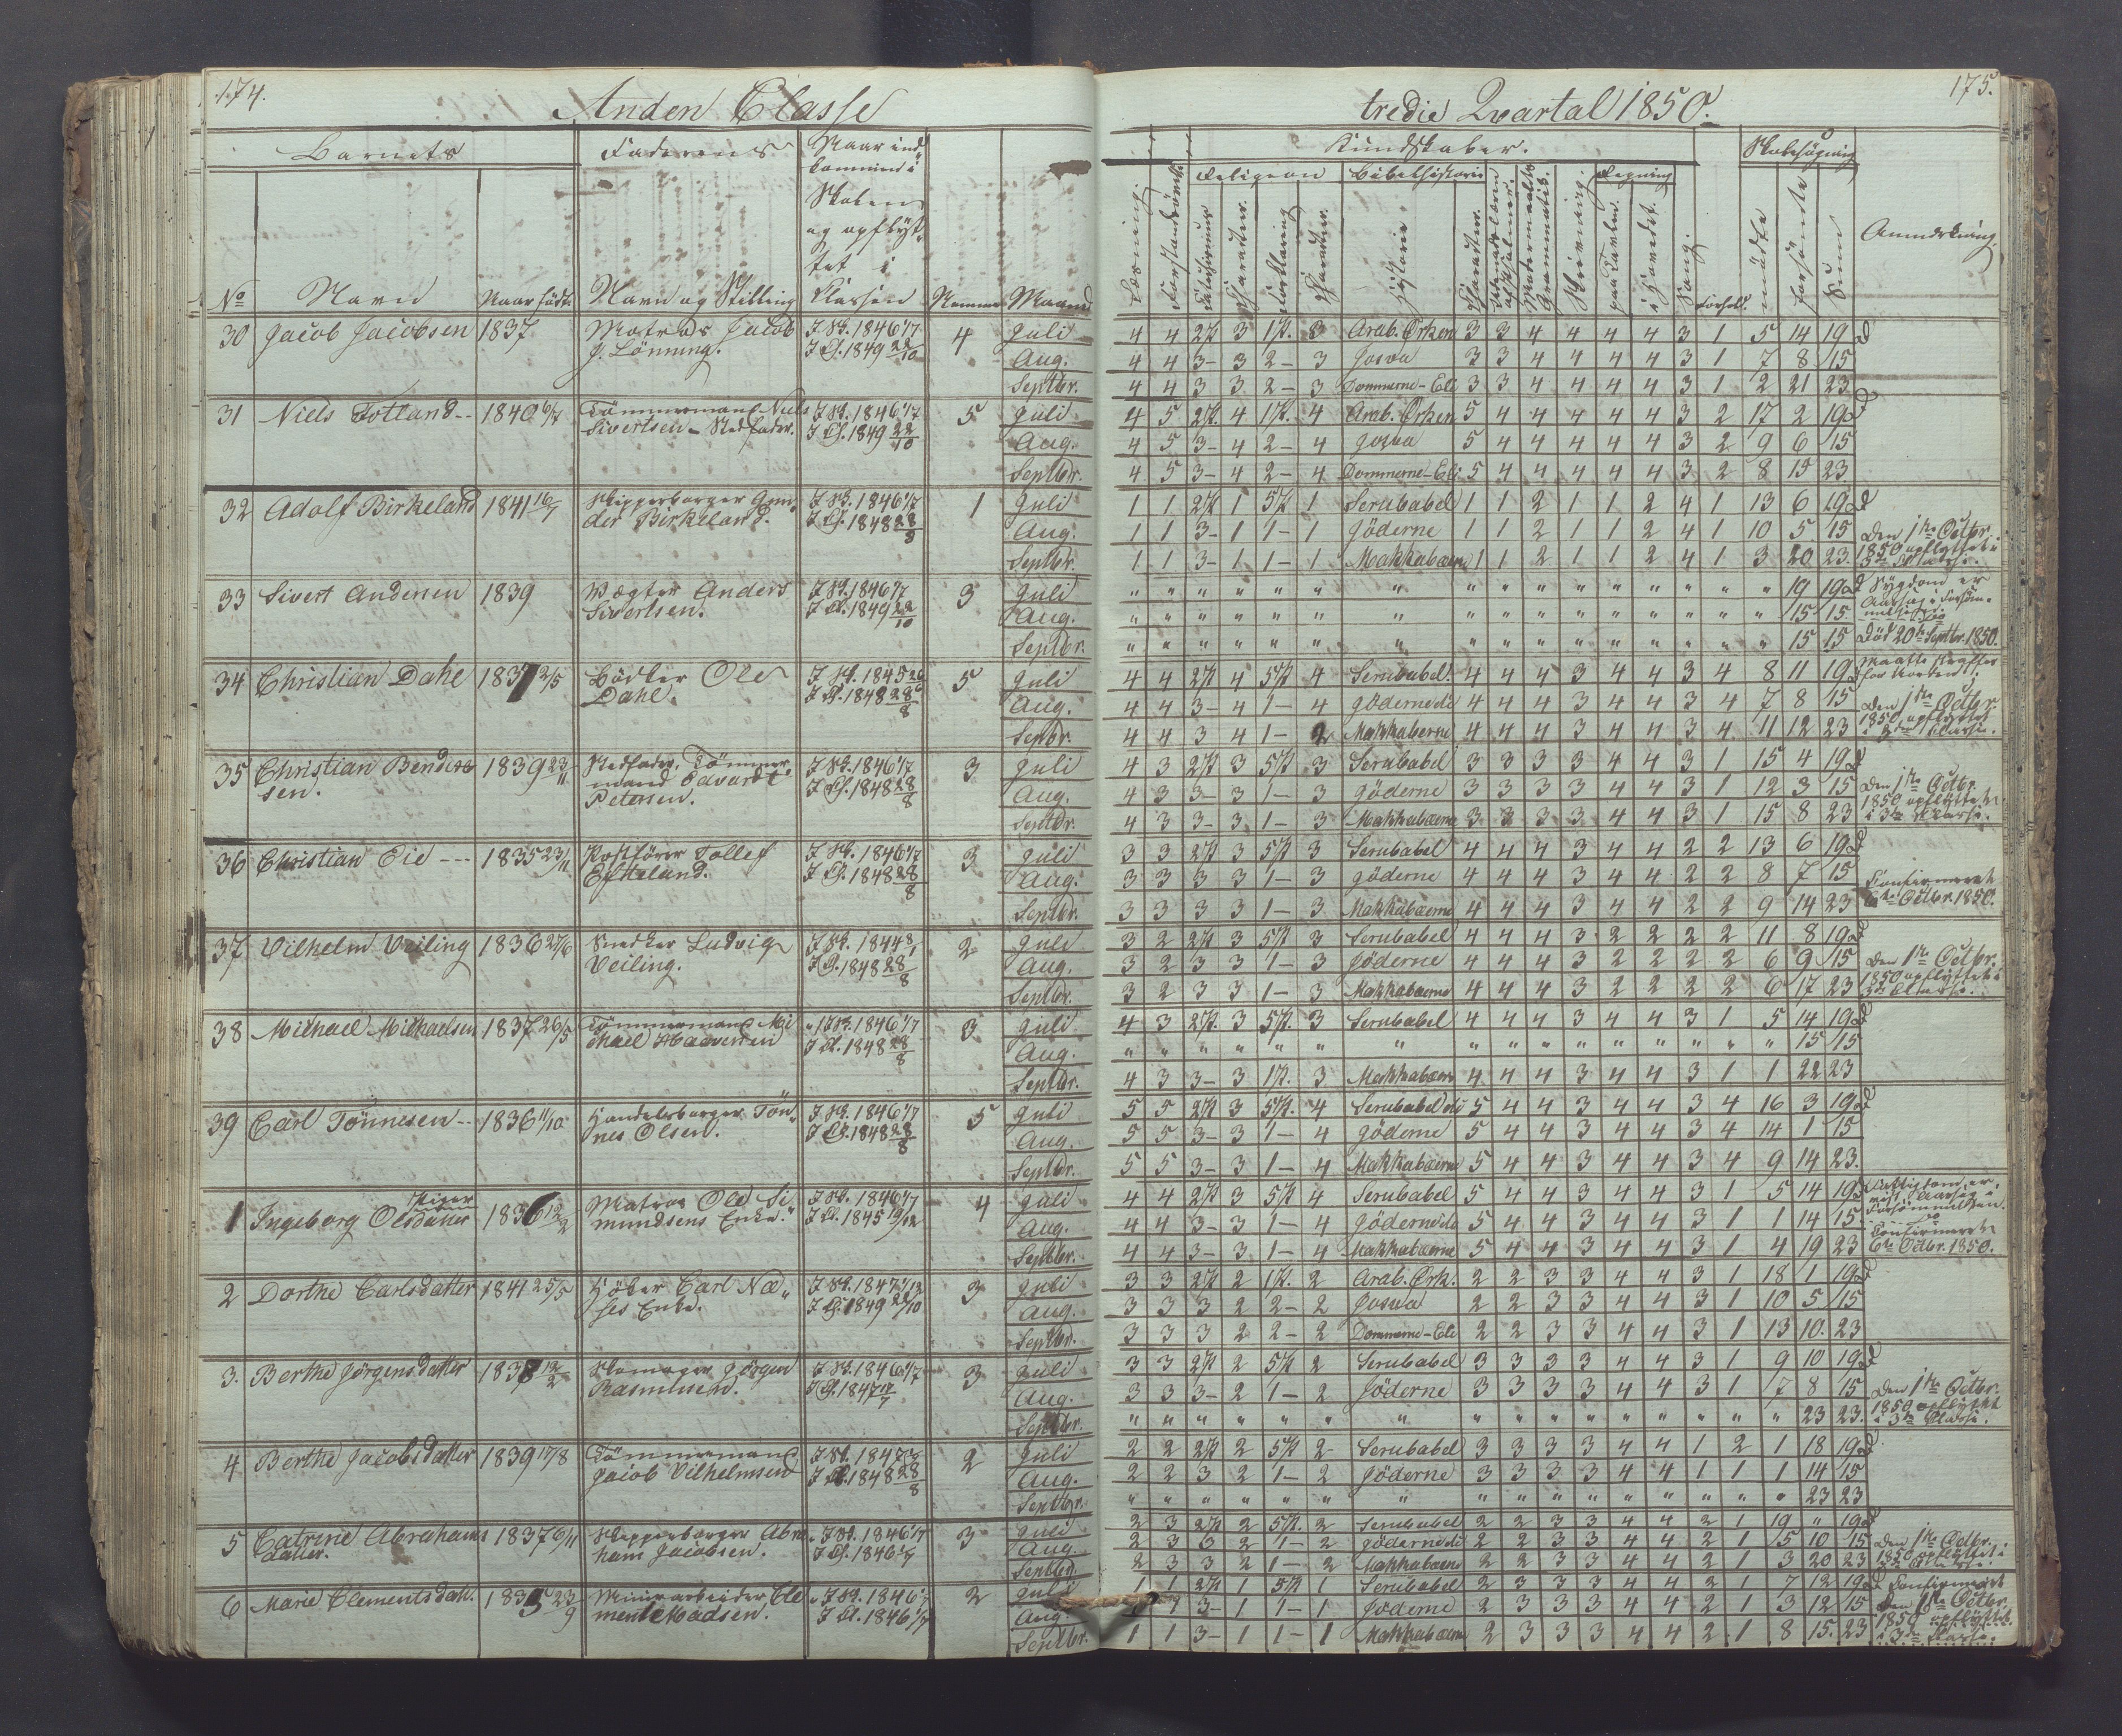 174.
Anden Classe
Barnets
Faderens
Naar ind-
kommen i
Skolen
og opflyt-
tet i
Classen
No
Navn
Naar født
Navn og Stilling
Nummer
Maaned
30 Jacob Jacobsen 1837 Matros Jacob I Sk. 1846 1/7 4 Juli
J. Lönning. I Cl. 1849 22/10 Aug.
Septbr.
31 Niels Totland -- 1840 6/7 Tømmermand Niels I Sk. 1846 1/7 5 Juli
Sivertsen - Stedfader. I Cl. 1849 22/10 Aug.
Septbr.
32 Adolf Birkeland 1841 16/7 Skipperborger I Sk. 1846 1/7 1 Juli
Birkeland. I Cl. 1848 28/8 Aug.
Septbr.
33 Sivert Andersen 1839 Vægter Anders I Sk. 1846 1/7 3 Juli
Sivertsen. I Cl. 1849 22/10 Aug.
Septbr.
34 Christian Dahl 1837 2/5 Bødker Ole I Sk. 1845 5 Juli
Dahl. I Cl. 1848 28/8 Aug.
Septbr.
35 Christian Bendix- 1839 23/11 Stedfader, Tømmer- I Sk. 1846 1/7 3 Juli
sen. mand Edvardt I Cl. 1848 28/8 Aug.
Petersen. Septbr.
36 Christian Eie --- 1835 23/11 Postfører Tollef I Sk. 1846 1/7 3 Juli
Efteland. I Cl. 1848 28/8 Aug.
Septbr.
37 Vilhelm Veiling 1836 27/6 Snedker Ludvig I Sk. 1844 8/1 2 Juli
Veiling. I Cl. 1848 28/8 Aug.
Septbr.
38 Michael Michaelsen 1837 26/5 Tømmermand Mi- I Sk. 1846 1/7 3 Juli
chael I Cl. 1848 28/8 Aug.
Septbr.
39 Carl Tönnesen -- 1836 11/10 Handelsborger Tön- I Sk. 1846 1/7 5 Juli
nes Olsen. I Cl. 1848 28/8 Aug.
Septbr.
1 Ingeborg Olsdatter 1836 12/2 Matros Ole Si- I Sk. 1846 1/7 4 Juli
mundsens Enke. I Cl. 1845 19/12 Aug.
Septbr.
2 Dorthe Carlsdatter 1841 25/5 Carl Næ- I Sk. 1847 1/12 3 Juli
ses Enke. I Cl. 1849 22/10 Aug.
Septbr.
3. Berthe Jörgensdatter 1838 12/2 Skomager Jörgen I Sk. 1846 1/7 3 Juli
Rasmussen. I Cl. 1847 Aug.
Septbr.
4 Berthe Jacobsdatter 1839 17/8 Tømmermand I Sk. 1847 2 Juli
Jacob Vilhelmsen I Cl. 1848 28/8 Aug.
Septbr.
5 Catrine Abrahams- 1837 6/11 Skipperborger Abra- I Sk. 1846 1/7 3 Juli
datter. ham Jacobsen. I Cl. 1846 1/7 Aug.
Septbr.
6 Marie Clementsdatt. 1835 23/9 Minerarbeider Cle- I Sk. 1846 1/7 2 Juli
ment Madsen. I Cl. 1846 1/7 Aug.
Septbr.
175.
tredie Qvartal 1850.
Kundskaber.
Skolesøgning
Religion
Bibelhistorie
Regning
Læsning.
Catechismus
Charakter.
Forklaring
Charakter.
Historie
Charakter.
Modersmaalets
Grammatik.
Skrivning.
paa Tavlen.
i Hovedet.
Sang.
Forhold.
mødte
forsømte
Sum
Anmærkning.
4 4 2P 3 1P. 3 Arab. Ørken 3 3 4 4 4 4 3 1 5 14 19
4 4 3- 3 2- 3 Josva 3 3 4 4 4 4 3 1 7 8 15
4 4 3 3 2- 3 Dommerne - Eli 3 3 4 4 4 4 3 1 2 21 23
4 5 2P. 4 1P. 4 Arab. Ørken 5 4 4 4 4 4 3 2 17 2 19
4 5 3- 4 2- 4 Josva 5 4 4 4 4 4 3 2 9 6 15
4 5 3- 4 2- 4 Dommerne - Eli 5 4 4 4 4 4 3 2 8 15 23
1 1 2P 1 5P 1 Serubabel 1 1 2 1 1 2 4 1 13 6 19
1 1 3- 1 1- 1 Jöderne 1 1 2 1 1 2 4 1 10 5 15
1 1 3- 1 1- 1 Makkabæerne 1 1 2 1 1 2 4 1 3 20 23
Den 1ste Octbr.
1850 opflyttet i
3die Classe.
" " " " " " " " " " " " " " " " 19 19
" " " " " " " " " " " " " " " " 15 15
" " " " " " " " " " " " " " " " 15 15
Sygdom er
Aarsag i Forsøm-
melsen.
Død 20de Septbr. 1850.
4 4 2P 4 5P 4 Serubabel. 4 4 4 3 4 4 3 4 8 11 19
4 4 3- 4 1- 4 Jöderne 4 4 4 3 4 4 3 4 7 8 15
4 4 3 4 1- 2 Makkabæerne 4 4 4 3 4 4 3 4 11 12 23
Den 1ste Octbr.
1850 opflyttet
i 3die Classe.
4 3 2P 3 5P 3 Serubabel 3 3 3 3 4 4 3 1 15 4 19
4 3 3- 3 1- 3 Jöderne 3 3 3 3 4 4 3 1 12 3 15
4 3 3- 3 1- 3 Makkabæerne 3 3 3 3 4 4 3 1 15 8 23
Den 1ste Octbr.
1850 opflyttet
i 3die Classe.
3 3 2P 3 5P 3 Serubabel 4 4 4 3 4 4 2 2 13 6 19
3 3 3 3 1- 3 Jöderne 4 4 4 3 4 4 2 2 8 7 15
3 3 3 3 1- 3 Makkabæerne 4 4 4 3 4 4 2 2 9 14 23
Confirmeret
6te Octbr. 1850.
3 2 2P 3 5P 3 Serubabel 4 4 4 3 2 2 2 2 11 8 19
3 2 3 3 1- 3 Jöderne 4 4 4 3 2 2 2 2 6 9 15
3 2 3 3 1- 3 Makkabæerne 4 4 4 3 2 2 2 2 6 17 23
Den 1ste Octbr.
1850 opflyttet i
3die Classe.
4 3 2P. 3 5P. 3 Serubabel 4 4 4 3 4 4 3 1 5 14 19
" " " " " " " " " " " " " " " " 15 15
4 3 3- 3 1P. 3 Makkabæerne 4 4 4 3 4 4 3 1 1 22 23
5 5 2P 3 5P. 4 Serubabel 5 4 4 3 4 4 3 4 16 3 19
5 5 3- 3 1- 4 Jöderne 5 4 4 3 4 4 3 4 14 1 15
5 5 3- 3 1- 4 Makkabæerne 5 4 4 3 4 4 3 4 9 14 23.
4 4 2P 3 5P 4 Serubabel 5 4 4 3 4 4 3 1 5 14 19
4 4 3- 3 1- 4 Jöderne 5 4 4 3 4 4 3 1 1 14 15
4 4 3- 3 1- 4 Makkabæerne 5 4 4 3 4 4 3 1 4 19 23
Fattigdom er
Aarsag i
Forsømmelsen.
Confirmeret
6te Octbr. 1850.
3 3 2P 2 1P. 2 Arab. Ørk. 2 2 3 3 4 4 3 1 18 1 19
3 3 3 2 2- 2 Josva 2 2 3 3 4 4 3 1 10 5 15
3 3 3 2 2- 2 Dommerne - Eli 2 2 3 3 4 4 3 1 13 10. 23
3 3 2P 2 5P 2 Serubabel 3 3 3 3 4 4 3 1 9 10 19
3 3 3- 2 1- 2 Jöderne 3 3 3 3 4 4 3 1 7 8 15
" " " " " " " " " " " " " " " " 23 23.
Den 1ste Octbr.
1850 opflyttet
i 3die Classe.
2 2 2P 2 5P 2 Serubabel 3 3 3 3 4 4 1 2 1 18 19
2 2 3 2 1- 2 Jöderne 3 3 3 3 4 4 1 1 1 14 15
" " " " " " " " " " " " " " " " 23 23
2 3 2P 2 5P. 2 Serubabel 2 2 3 3 4 4 2 1 19 " 19
2 3 3 2 1- 2 Jöderne 2 2 3 3 4 4 2 1 5 10 15
2 3 3 2 1- 2 Makkabæerne 2 2 3 3 4 4 2 1 3 20 23
Den 1ste Octbr.
1850 opflyttet i
1 1 2P 1 5P 1 Serubabel 2 3 3 3 4 4 2 1 7 12 19
1 1 3- 1 1- 1 Jöderne 2 3 3 3 4 4 2 1 3 12 15
1 1 3- 1 1- 1 Makkabæerne 2 3 3 3 4 4 2 1 8 15. 23
Confirmeret
Den 1ste Octbr.
1850 opflyttet
i 3die Classe.